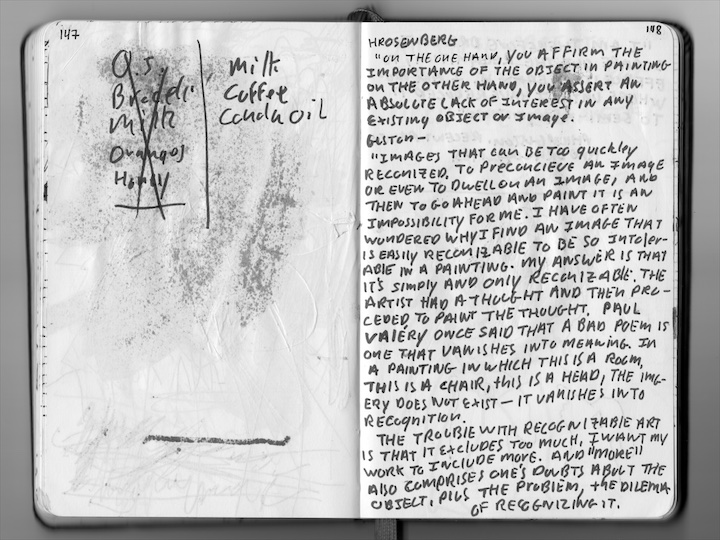 147
O.J.
Bread
Milk
Oranges
Honey
Milk
Coffee
Canda Oil
148
HROSENBERG
"ON THE ONE HAND, YOU AFFIRM THE
IMPORTANCE OF THE OBJECT IN PAINTING
ON THE OTHER HAND, YOU ASSERT AN
ABSOLUTE LACK OF INTEREST IN ANY
EXISTING OBJECT OR IMAGE.
GUSTON —
"IMAGES THAT CAN BE TOO QUICKLEY
RECONIZED. TO PRECONCIEVE AN IMAGE
OR EVEN TO DWELL ON AN IMAGE, AND
THEN TO GO AHEAD AND PAINT IT IS AN
IMPOSSIBILITY FOR ME. I HAVE OFTEN
WONDERED WHY I FIND AN IMAGE THAT
IS EASILY RECONIZABLE TO BE SO INTOLER-
ABLE IN A PAINTING. MY ANSWER IS THAT
IT'S SIMPLY AND ONLY RECONIZABLE. THE
ARTIST HAD A THOUGHT AND THEN PRO-
CEDED TO PAINT THE THOUGHT. PAUL
VALERY ONCE SAID THAT A BAD POEM IS
ONE THAT VANISHES INTO MEANING. IN
A PAINTING IN WHICH THIS IS A ROOM,
THIS IS A CHAIR, THIS IS A HEAD, THE IMG-
ERY DOES NOT EXIST — IT VANISHES INTO
RECOGNITION.
THE TROUBLE WITH RECOGNIZABLE ART
IS THAT IT EXCLUDES TOO MUCH, I WANT MY
WORK TO INCLUDE MORE. AND "MORE"
ALSO COMPRISES ONE'S DOUBTS ABOUT THE
OBJECT, PLUS THE PROBLEM, THE DILEMA
OF RECOGNIZING IT.